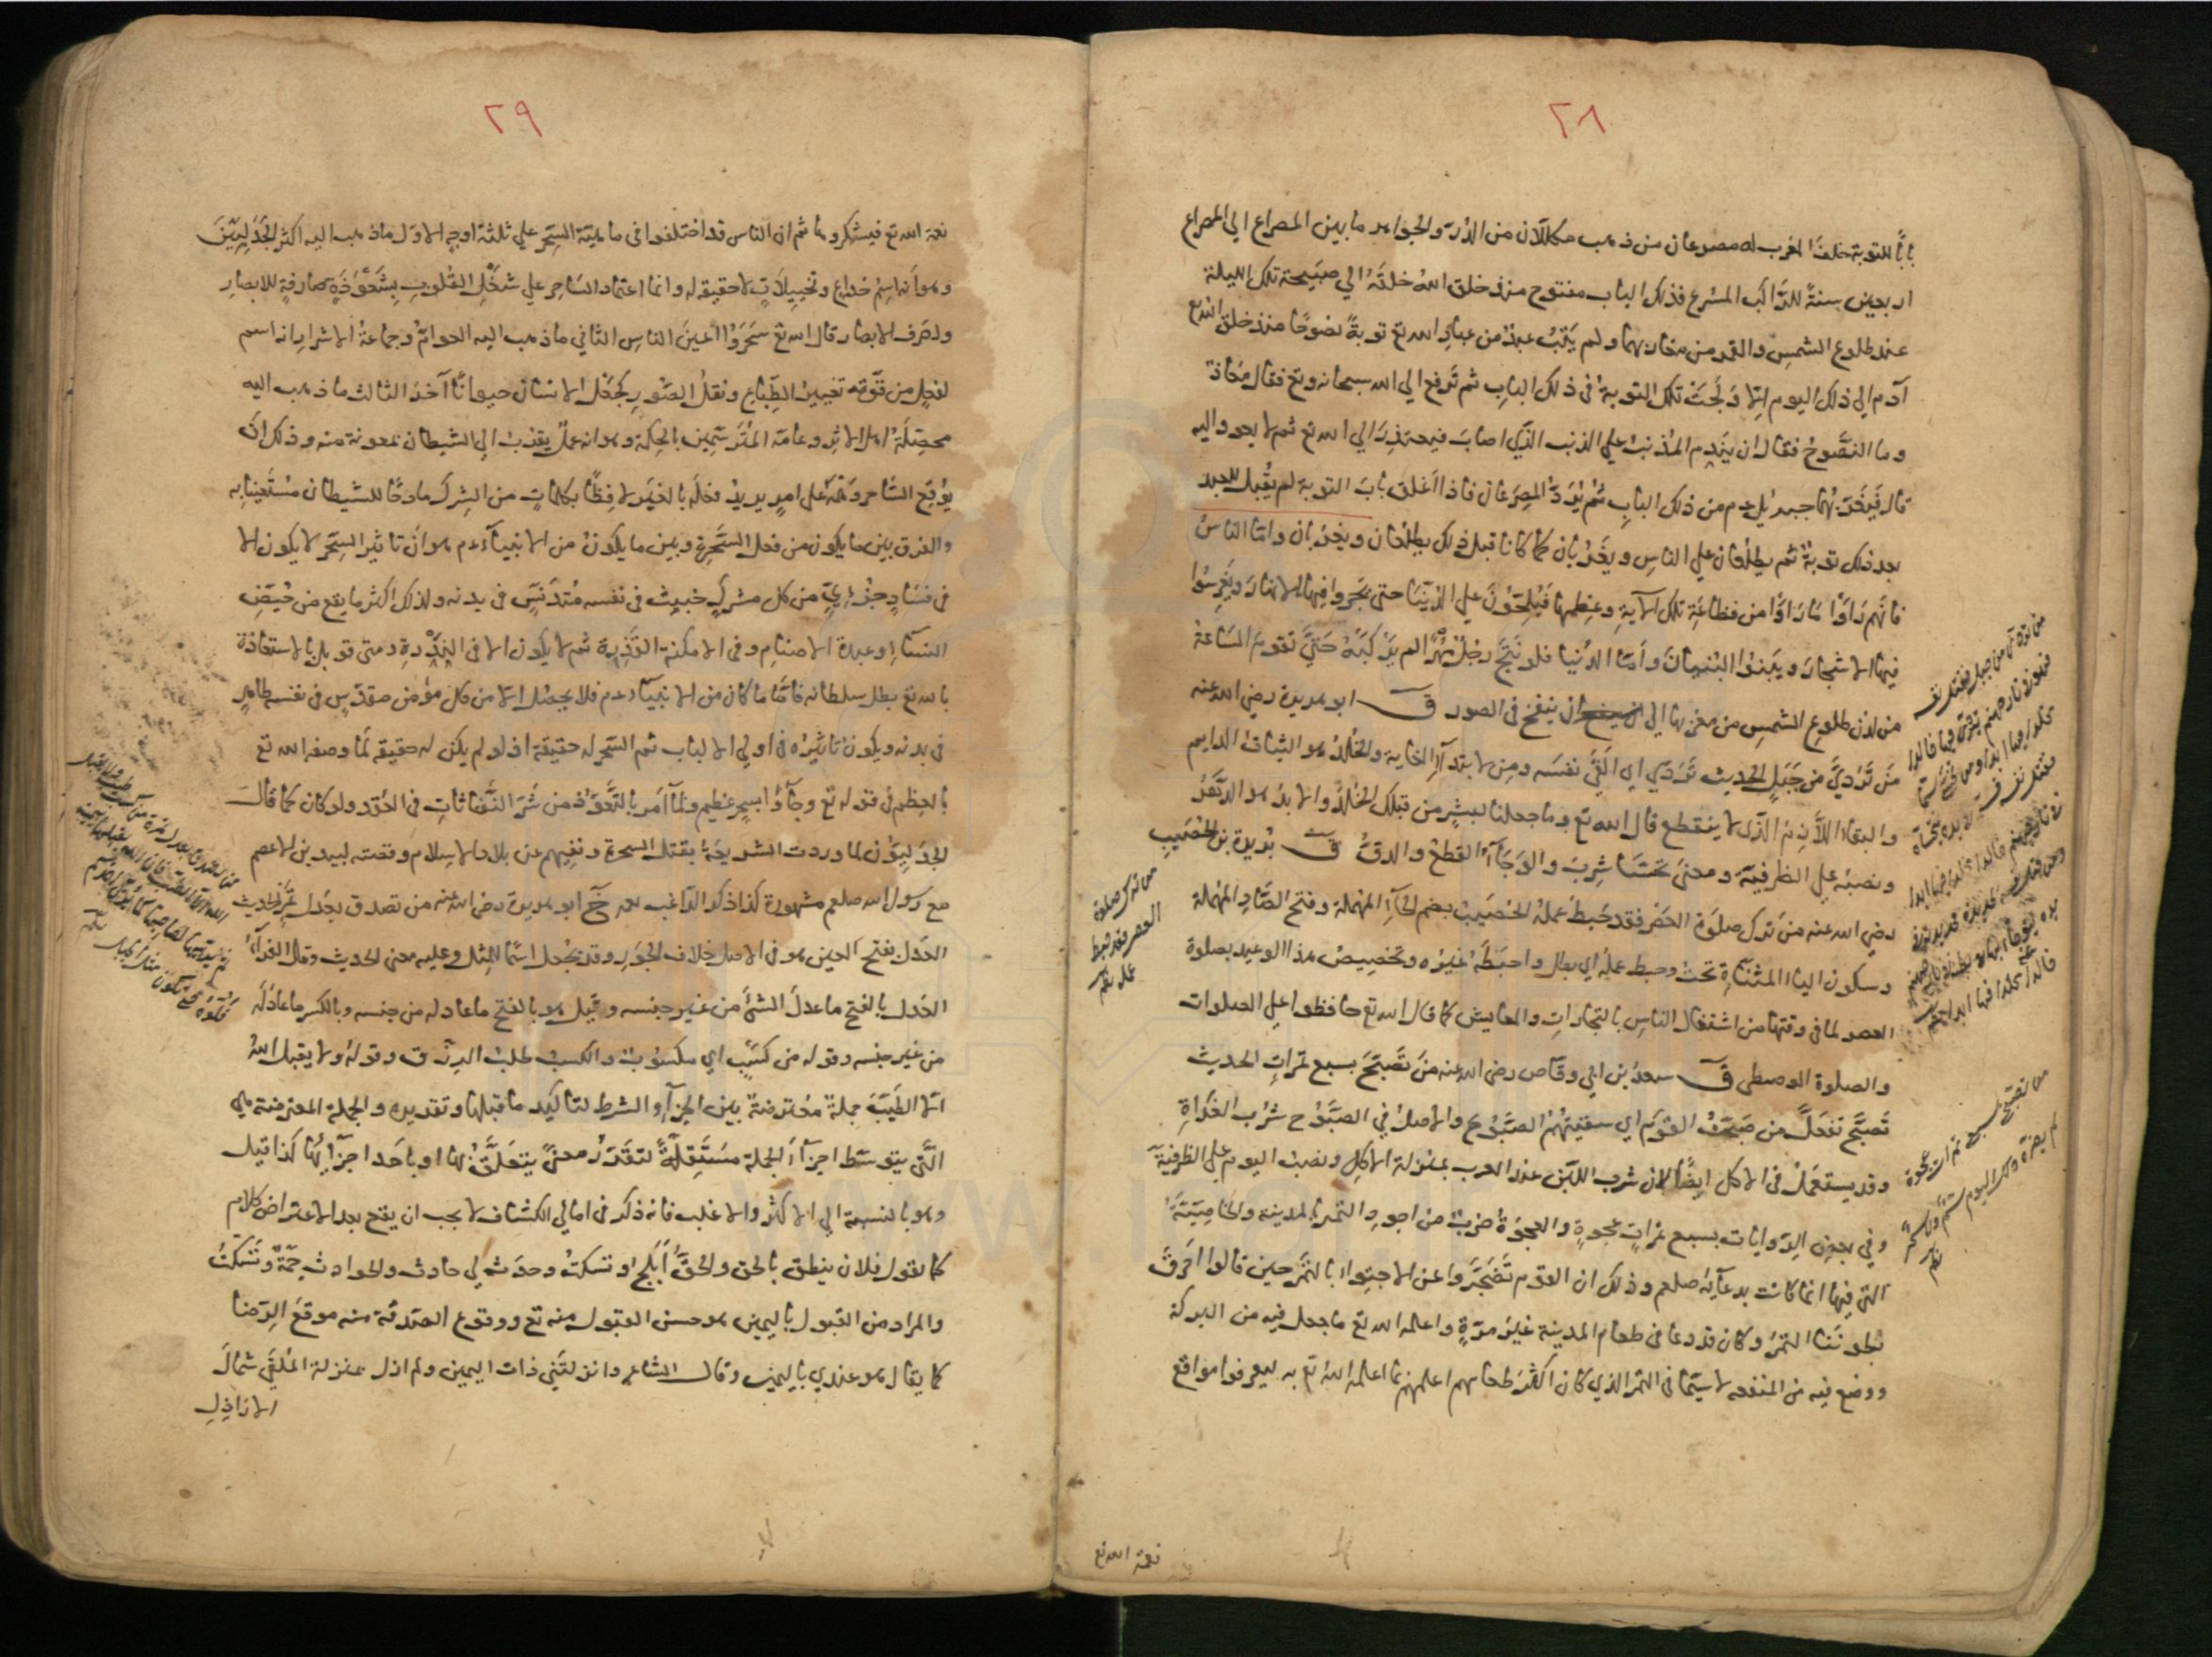 ٢٨
بابًا للتوبة خلف المغرب له مصراعان من ذهب مكللان من الدر والجواهر ما بين المصراع الي المصراع
اربعين سنة للراكب المسرع فذلك الباب مفتوح منذ خلق الله خلقه الي صبيحة تلك الليلة
عند طلوع الشمس والقمر من مغاربهما ولم يتب عبد من عباد الله تع توبة نصوحا منذ خلق الله تع
آدم الي ذلك اليوم الا ولجت تلك التوبة في ذلك الباب ثم ترفع الي الله سبحانه وتع فقال معاذ
وما النصوح فقال ان يندم المذنب علي الذنب الذي اصاب فيعتذر الي الله تع ثم لا يعود اليه
قال فيغربهما جبرئيل عم من ذلك الباب ثم يرد المصرعان فاذا اغلق باب التوبة لم يقبل للعبد
بعد ذلك توبة ثم يطلعان علي الناس ويغربان كما كانا قبل ذلك يطلعان ويغربان واما الناس
فانهم راوا ما راوا من فظاعة تلك الآية وعظمها فيلحون علي الدنيا حتي يجروا فيها الانهار ويغرسوا
فيها الاشجار ويبنوا البنيان وأما الدنيا فلو نتج رجل مهرًا لم يركبه حتي تقوم الساعة
من لدن طلوع الشمس من مغربها الي ان ينفخ في الصور ق ابو هريرة رضي الله عنه
من تردي من جبل الحديث تردي اي القي نفسه ومن لابتداء الغاية والخلد هو الثبات الدايم
والبقاء اللازم الذي لا ينقطع قال الله تع وما جعلنا لبشر من قبلك الخلد والابد هو الدهر
ونصبه علي الظرفية ومعني تحسا شرب والوجاء القطع والدق ق بريدة بن الحصيب
رضي الله عنه من ترك صلوة العصر فقد حبط عمله الحصيب بضم الحاء المهملة وفتح الصاد المهملة
وسكون الياء المثناة تحت وحبط عمله اي بطل واحبطه غيره وتخصيص هذا الوعيد بصلوة
العصر لما في وقتها من اشتغال الناس بالتجارات والمعايش كما قال الله تع حافظوا علي الصلوات
والصلوة الوسطي ق سعد بن ابي وقاص رضي الله عنه من تصبح بسبع تمرات الحديث
تصبح تفعل من صبحت القوم اي سقيتهم الصبوح والاصل في الصبوح شرب الغداة
وقد يستعمل في الاكل ايضًا لان شرب اللبن عند العرب بمنزلة الاكل ونصب اليوم علي الظرفية
وفي بعض الروايات بسبع تمرات عجوة والعجوة ضرب من اجود التمر بالمدينة والخاصية
التي فيها انما كانت بدعائه صلعم وذلك ان القوم تضجروا عن الاجتواء بالتمر حين قالوا احرق
بطوننا التمر وكان قد دعا في طعام المدينة غير مرة واعلمه الله تع ما جعل فيه من البركة
ووضع فيه من المنفعه لا سيما في التمر الذي كان اكثر طعامهم اعلمهم بما اعلمه الله تع به ليعرفوا مواقع
نعمة الله تع
من ترك صلوة
العصر فقد حبط
عمله
من تردي من جبل فقتل نفسه
فهو في نار جهنم يتردي فيها خالدا
مخلدا فيها ابدا ومن تحسي سما
من تصبح بسبع تمرات عجوة
لم يضره ذلك اليوم سم ولا سحر
٢٩
نعمة الله تع فيشكروها ثم ان الناس قد اختلفوا في ماهية السحر علي ثلثة اوجه الاول ما ذهب اليه اكثر الجدليين
وهو أنه اسم خداع وتخييلات لا حقيقة له وانما اعتماد الساحر علي شغل القلوب بشعوذة صارفة للابصار
ولصرف الابصار قال الله تع سحروا اعين الناس الثاني ما ذهب اليه العوام وجماعة الاشرار انه اسم
لفعل من قوته تغيير الطباع ونقل الصور كجعل الانسان حيوانًا آخر الثالث ما ذهب اليه
محصلة اهل الاثر وعامة المترسمين بالحكمة وهو انه عمل يقرب الي الشيطان بمعونة منه وذلك ان
يوقع الساحر وهمه علي امر يريد فعله بالغير لافظًا بكلمات من الشرك مادحًا للشيطان مستعينا به
والفرق بين ما يكون من فعل السحرة وبين ما يكون من الانبياء عم هو ان تاثير السحر لا يكون الا
في فساد جزءي من كل مشرك خبيث في نفسه متدنس في بدنه ولذلك اكثر ما يقع من حيض
النساء وعبدة الاصنام وفي الامكنة القذرة ثم لا يكون الا في الندرة ومتي قوبل بالاستعاذة
بالله تع بطل سلطانه فاما ما كان من الانبياء عم فلا يحصل الا من كل مؤمن مقدس في نفسه طاهر
في بدنه ويكون تاثيره في اولي الالباب ثم السحر له حقيقة اذ لو لم يكن له حقيقة لما وصفه الله تع
بالعظم في قوله تع وجاؤا بسحر عظيم ولما أمر بالتعوذ من شر النفاثات في العقد ولو كان كما قال
الجدليون لما وردت الشريعة بقتل السحرة ونفيهم عن بلاد الاسلام وقصة لبيد بن الاعصم
مع رسول الله صلعم مشهورة كذا ذكر الراغب رحمه خ ابو هريرة رضي الله عنه من تصدق بعدل تمرة الحديث
العدل بفتح العين هو في الاصل خلاف الجور وقد يجعل اسمًا للمثل وعليه معني الحديث وقال الفراء
العدل بالفتح ما عدل الشئ من غير جنسه وقيل هو بالفتح ما عادله من جنسه وبالكسر ما عادله
من غير جنسه وقوله من كسب اي مكسوب والكسب طلب الرزق وقوله ولا يقبل الله
الا الطيب جملة معترضة بين الجزاء والشرط لتاكيد ما قبلها وتقديره والجملة المعترضة هي
التي يتوسط اجزاء الجملة مستقلة لتقرر معني يتعلق بها او باحد اجزائها كذا قيل
وهو بالنسبة الي الاكثر والاغلب فانه ذكر في امالي الكشاف لا يجب ان يقع بعد الاعتراض كلام
كما تقول فلان ينطق بالحق والحق أبلج وتسكت وحدث لي حادث والحوادث جمة وتسكت
والمراد من القبول باليمين هو حسن القبول منه تع ووقوع الصدقة منه موقع الرضا
كما يقال هو عندي باليمين وقال الشاعر وانزلتني ذات اليمين ولم ازل بمنزلة الملقي شمال
الاراذل